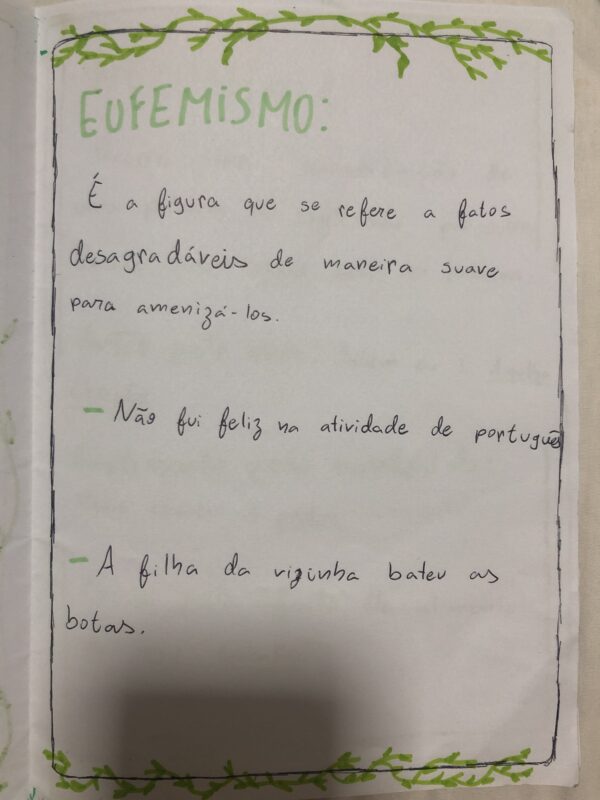 EUFEMISMO:
É a figura que se refere a fatos
desagradáveis de maneira suave
para amenizá-los.
- Não fui feliz na atividade de português
- A filha da vizinha bateu as
botas.